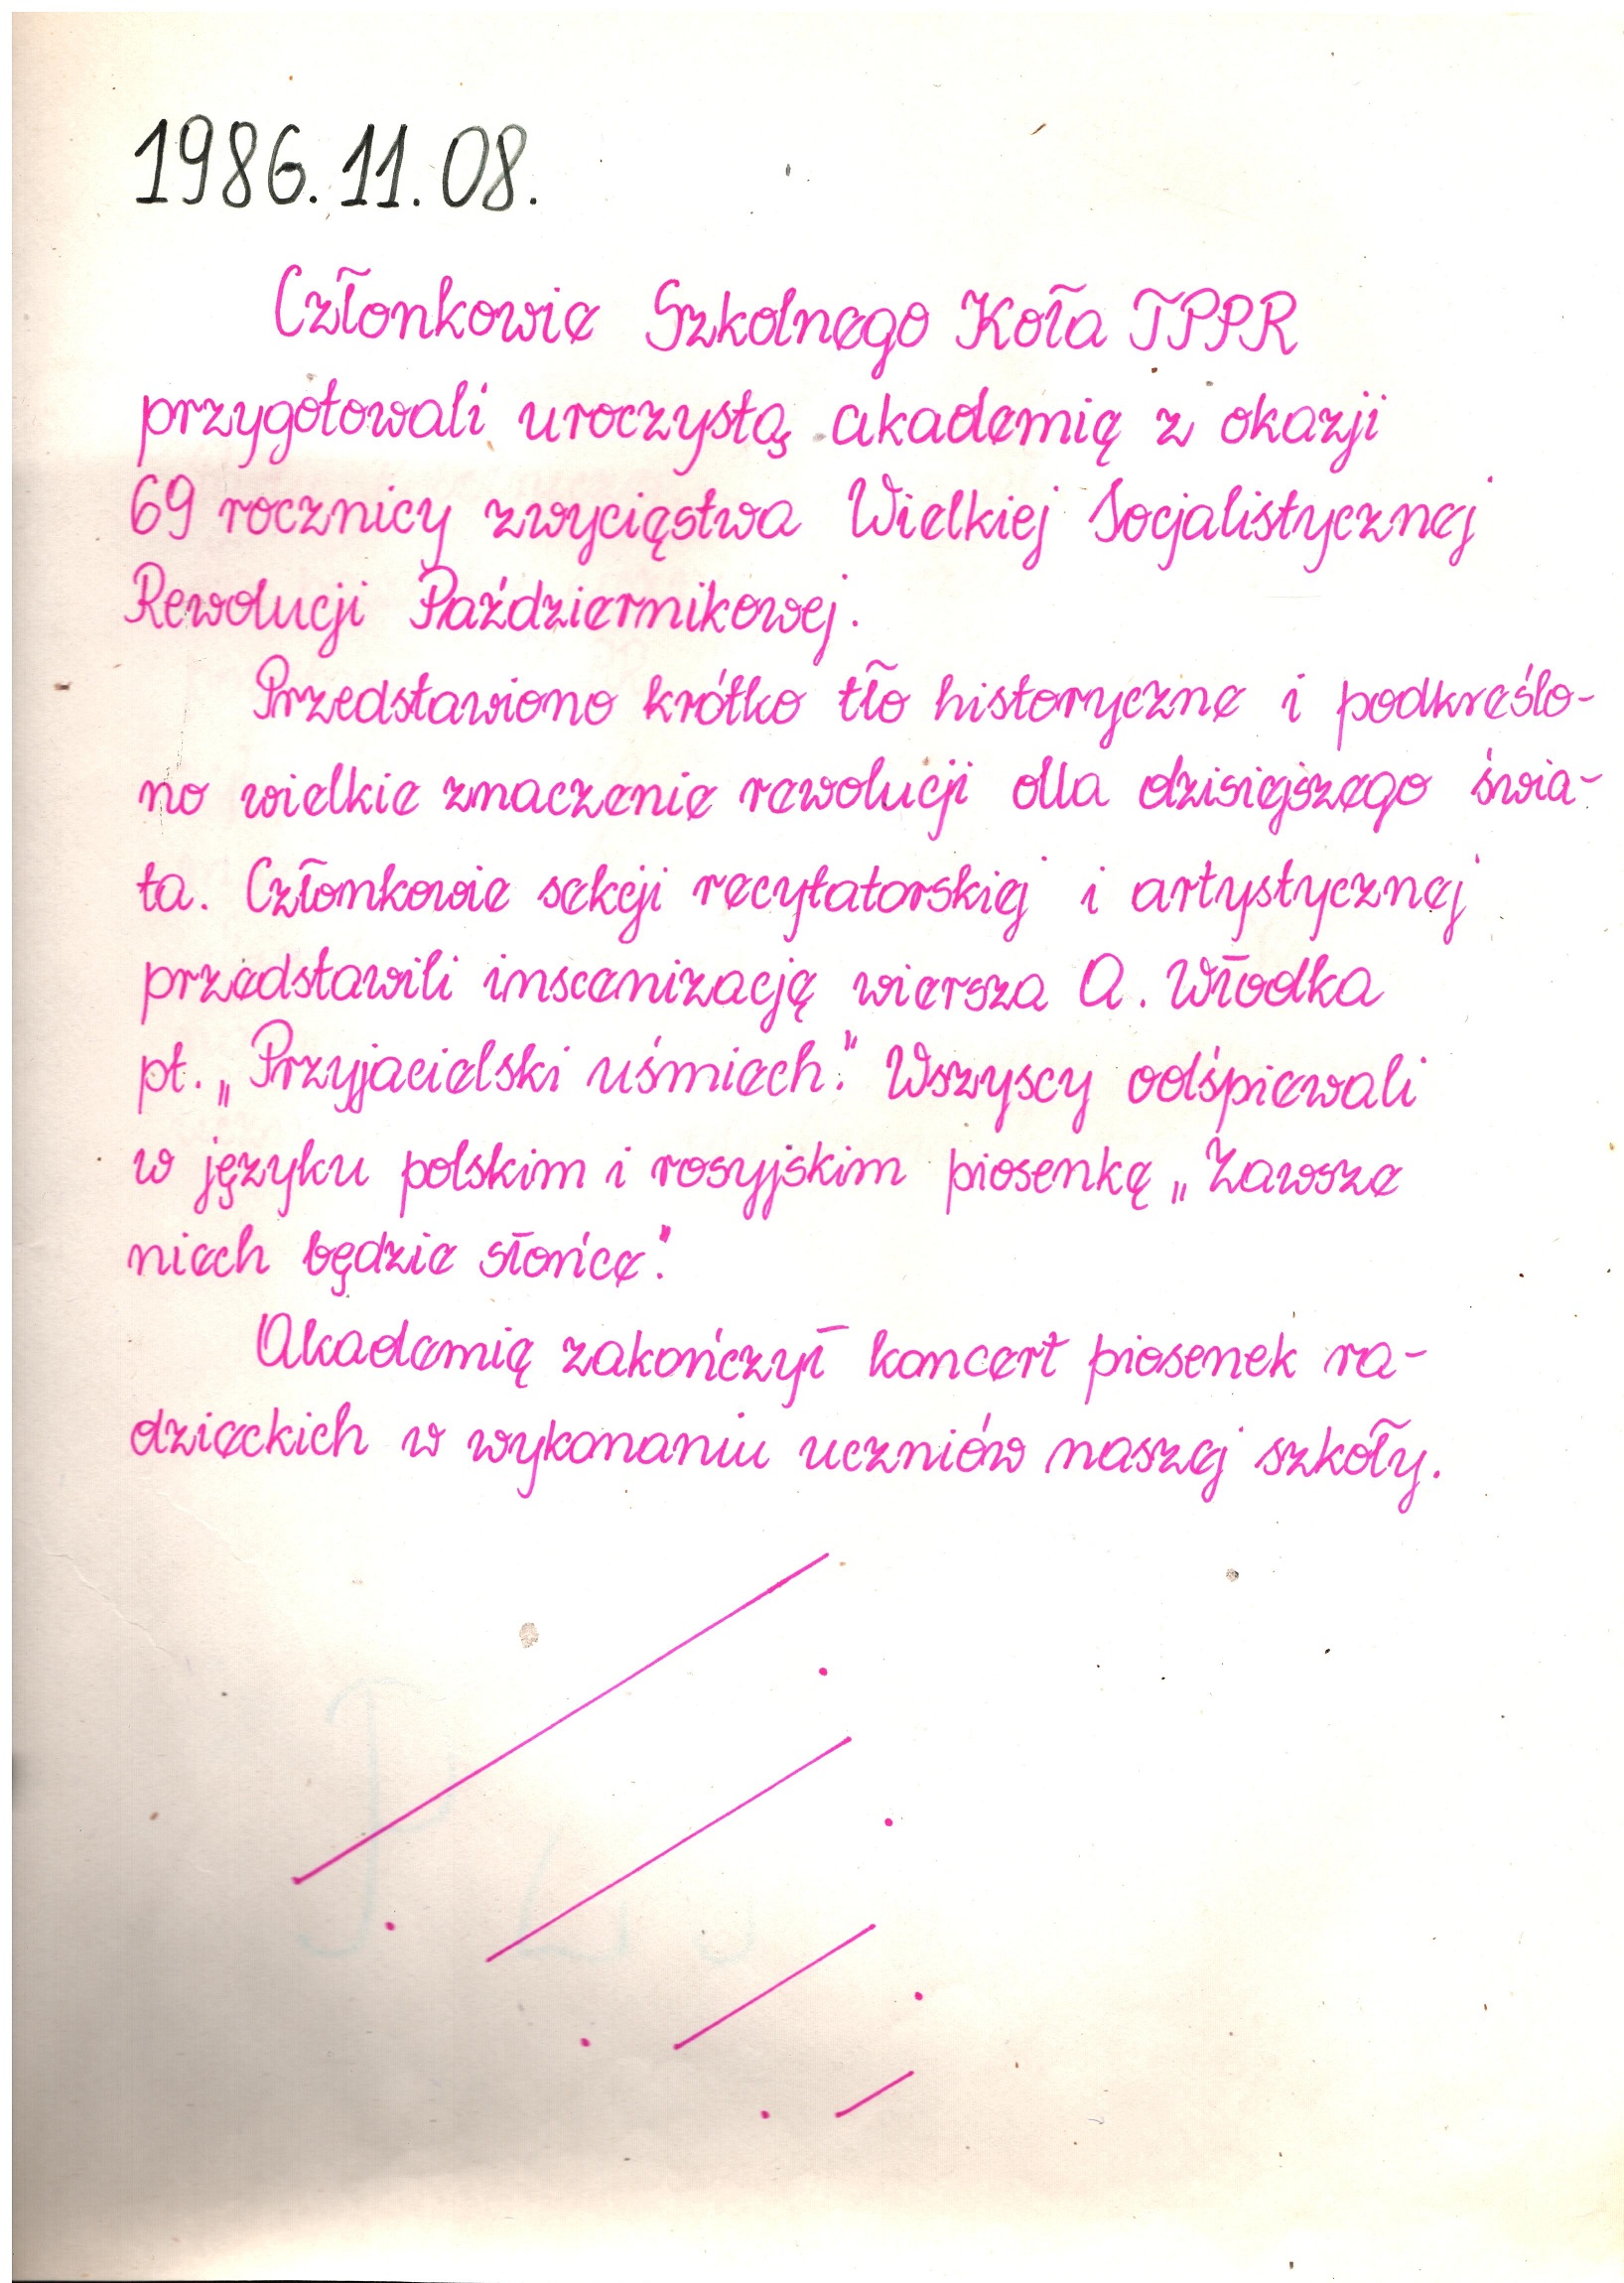 1986.11.08.
Członkowie Szkolnego Koła TPPR
przygotowali uroczystą akademię z okazji
69 rocznicy zwycięstwa Wielkiej Socjalistycznej
Rewolucji Październikowej.
Przedstawiono krótko tło historyczne i podkreślo-
no wielkie znaczenie rewolucji dla dzisiejszego świa-
ta. Członkowie sekcji recytatorskiej i artystycznej
przedstawili inscenizację wiersza A. Włodka
pt. „Przyjacielski uśmiech." Wszyscy odśpiewali
w języku polskim i rosyjskim piosenkę „Zawsze
niech będzie słońce."
Akademię zakończył koncert piosenek ra-
dzieckich w wykonaniu uczniów naszej szkoły.